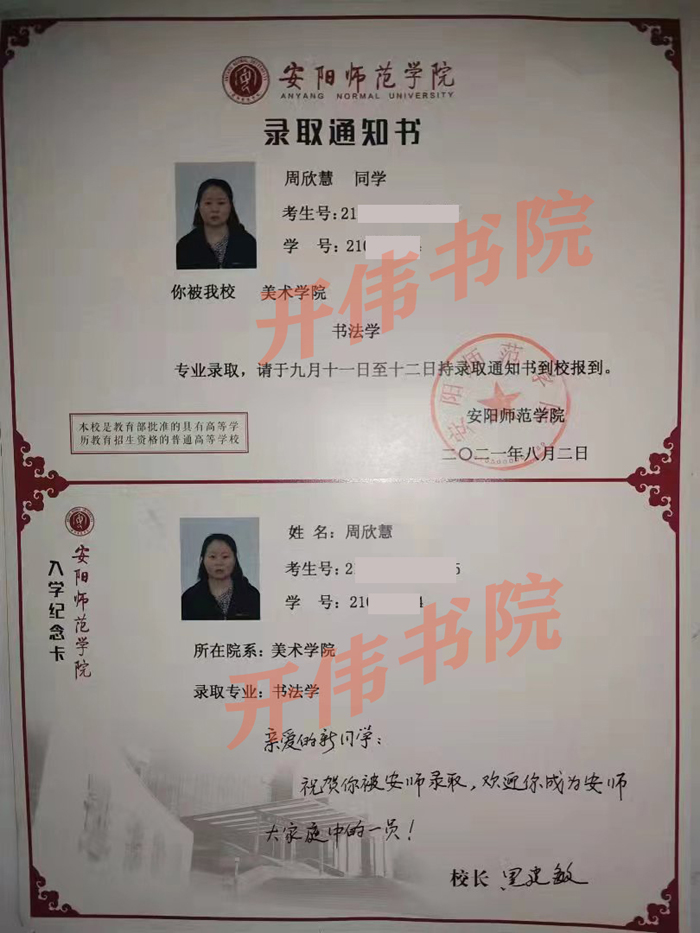 安阳师范学院
ANYANG NORMAL UNIVERSITY
录取通知书
周欣慧 同学
考生号:21
学 号:210 4
你被我校 美术学院
书法学
专业录取,请于九月十一日至十二日持录取通知书到校报到。
安阳师范学院
安阳师范学院
二〇二一年八月二日
本校是教育部批准的具有高等学
历教育招生资格的普通高等学校
开伟书院
安阳师范学院
入学纪念卡
姓 名:周欣慧
考生号:2 5
学 号:210 4
所在院系:美术学院
录取专业:书法学
亲爱的新同学:
祝贺你被安师录取,欢迎你成为安师
大家庭中的一员!
校长 黑建敏
开伟书院